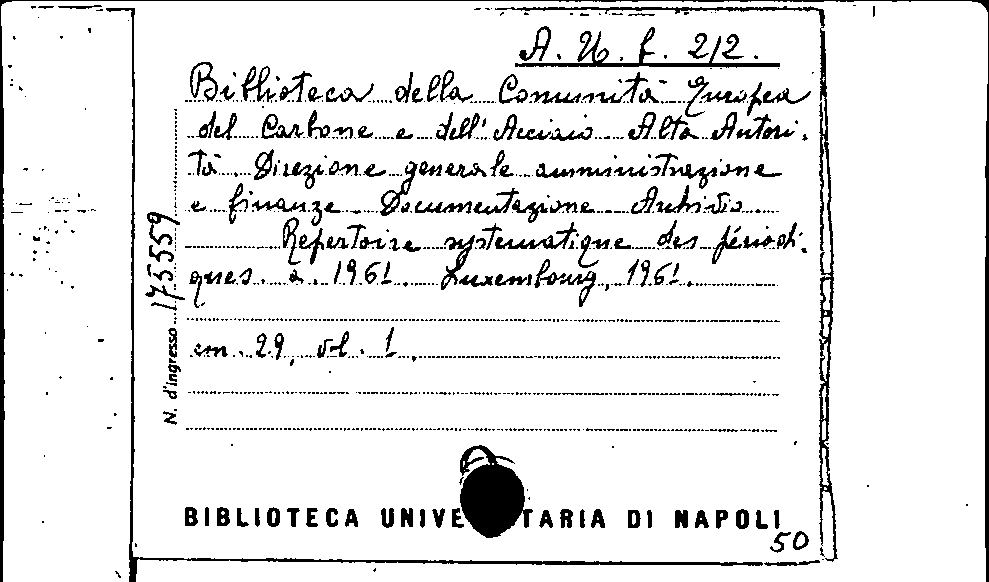 A. U. f. 212.
Biblioteca della Comunità Europea
del Carbone e dell'Acciaio. Alta Autori-
tà. Direzione generale amministrazione
e finanze. Documentazione. Archivio.
Repertoire systematique des périodi-
ques. a. 1961. Luxembourg, 1961.
cm. 29, vol. 1.
N. d'ingresso 175559
BIBLIOTECA UNIVE TARIA DI NAPOLI
50